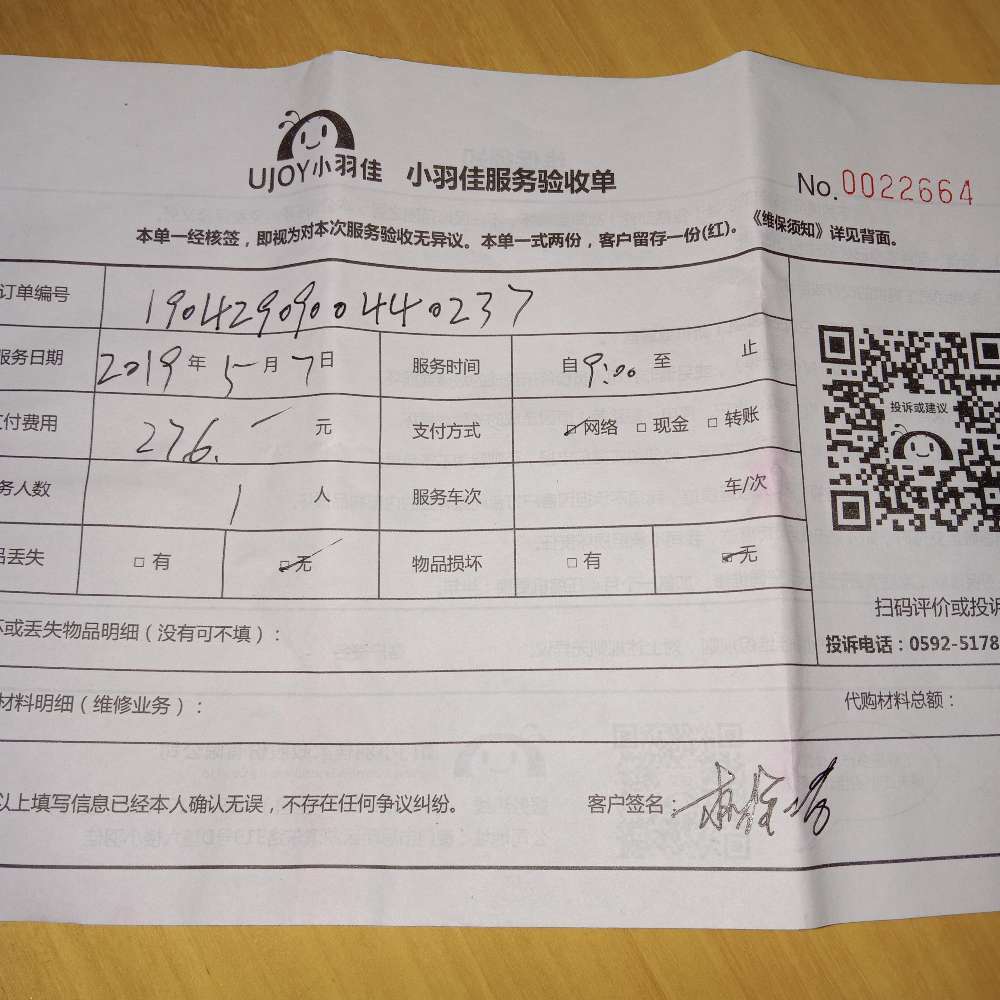 UJOY小羽佳 小羽佳服务验收单 No.0022664
本单一经核签，即视为对本次服务验收无异议。本单一式两份，客户留存一份(红)。《维保须知》详见背面。
订单编号 19042909004440237
服务日期 2019年5月7日 服务时间 自9:00至 止
付费用 276. 元 支付方式 网络 □现金 □转账
务人数 1 人 服务车次 车/次
品丢失 □有 无 物品损坏 □有 无
投诉或建议
扫码评价或投诉
投诉电话：0592-5178
坏或丢失物品明细（没有可不填）：
材料明细（维修业务）： 代购材料总额：
以上填写信息已经本人确认无误，不存在任何争议纠纷。 客户签名：